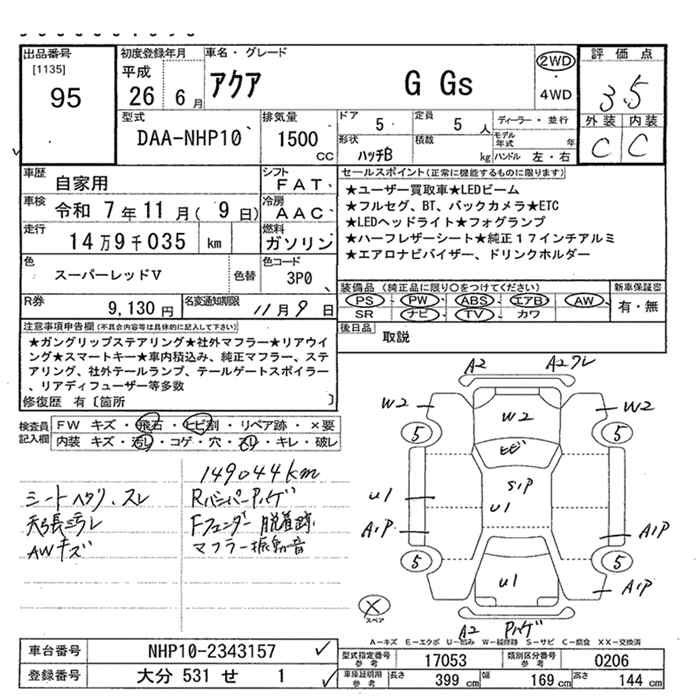 出品番号
[1135]
95
初度登録年月
平成
26 6月
車名・グレード
アクア G Gs
2WD
・
4WD
評価点
3.5
外装 内装
C C
型式
DAA-NHP10
排気量
1500 cc
ドア 5
定員 5 人
形状 ハッチB
積載 kg
ディーラー・並行
モデル年式 年
ハンドル 左・右
車歴 自家用
車検 令和 7年 11月 ( 9日)
走行 14万9千035 km
シフト FAT
冷房 AAC
燃料 ガソリン
色 スーパーレッドV 色替
色コード 3P0
R券 9,130円
名変通知期限 11月9日
セールスポイント(正常に機能するものに限ります)
★ユーザー買取車★LEDビーム
★フルセグ、BT、バックカメラ★ETC
★LEDヘッドライト★フォグランプ
★ハーフレザーシート★純正17インチアルミ
★エアロナビバイザー、ドリンクホルダー
装備品(純正品に限り○をつけてください)
PS・PW・ABS・エアB・AW・
SR ナビ・TV・カワ
新車保証書
有・無
後日品 取説
注意事項申告欄(不具合内容等は具体的に記入して下さい)
★ガングリップステアリング★社外マフラー★リアウイ
ング★スマートキー★車内積込み、純正マフラー、ステ
アリング、社外テールランプ、テールゲートスポイラー
、リアディフューザー等多数
修復歴 有〔箇所 〕
検査員記入欄
FW キズ・飛石・ヒビ割・リペア跡・×要
内装 キズ・汚れ・コゲ・穴・スリ・キレ・破レ
149044km
シートヘタリ、スレ
AWキズ
RバンパーAハゲ
Fフェンダー脱着跡
マフラー振動音
A2 A2
W2 W2 W2
5 5
ヒビ
S1P
U1 U1
A1P A1P
5 5
U1 A1P
A2
スペア
A-キズ E-エクボ U-凹み W-補修跡 S-サビ C-腐食 XX-交換済
車台番号 NHP10-2343157
登録番号 大分 531 せ 1
型式指定番号 参考 17053
類別区分番号 参考 0206
車庫証明用 参考 長さ 399 cm 幅 169 cm 高さ 144 cm